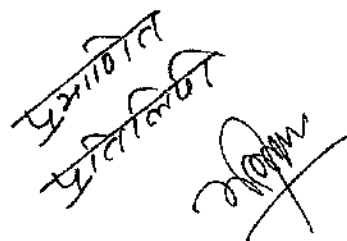 प्रमाणित
प्रतिलिपी